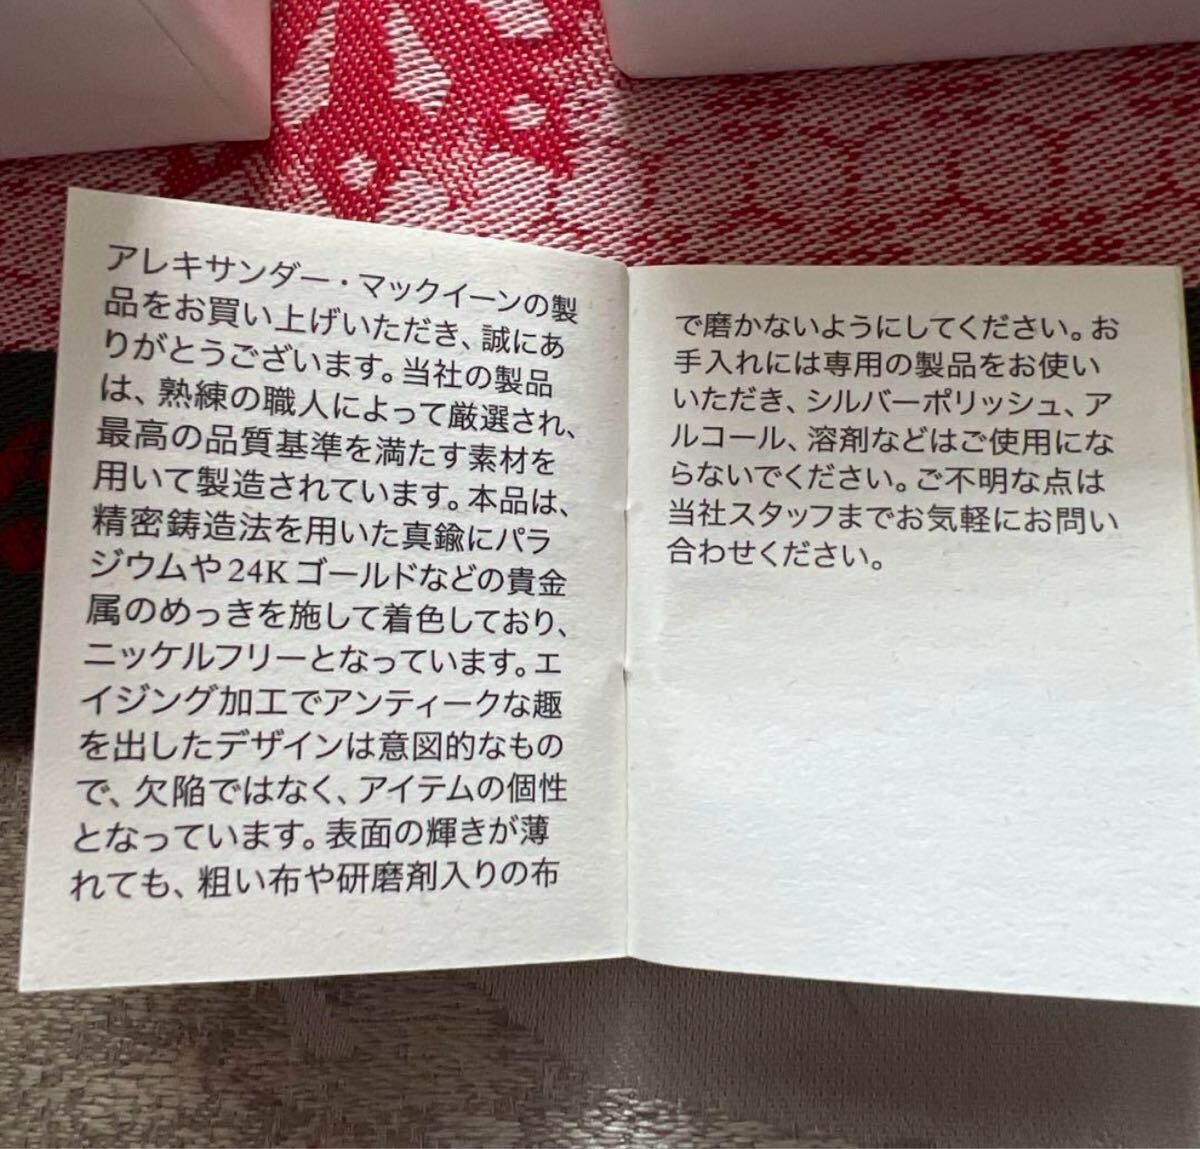 アレキサンダー・マックイーンの製
品をお買い上げいただき、誠にあ
りがとうございます。当社の製品
は、熟練の職人によって厳選され、
最高の品質基準を満たす素材を
用いて製造されています。本品は、
精密鋳造法を用いた真鍮にパラ
ジウムや24Kゴールドなどの貴金
属のめっきを施して着色しており、
ニッケルフリーとなっています。エ
イジング加工でアンティークな趣
を出したデザインは意図的なもの
で、欠陥ではなく、アイテムの個性
となっています。表面の輝きが薄
れても、粗い布や研磨剤入りの布
で磨かないようにしてください。お
手入れには専用の製品をお使い
いただき、シルバーポリッシュ、ア
ルコール、溶剤などはご使用にな
らないでください。ご不明な点は
当社スタッフまでお気軽にお問い
合わせください。